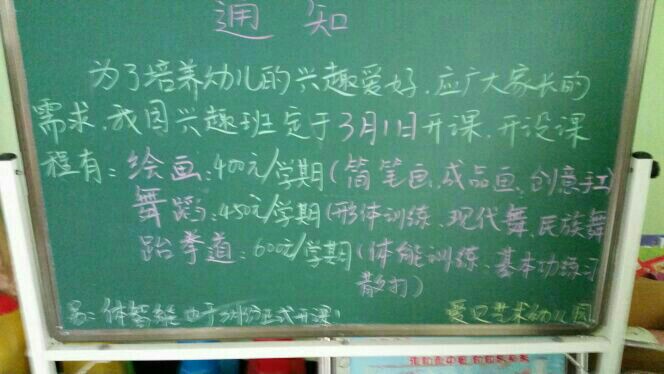 通 知
为了培养幼儿的兴趣爱好,应广大家长的
需求,我园兴趣班定于3月1日开课,开设课
程有:绘画:400元/学期(简笔画、成品画、创意手工)
舞蹈:450元/学期(形体训练、现代舞、民族舞
跆拳道:600元/学期(体能训练、基本功练习
散打)
另:体智能 于 份正式开课!
艺术幼儿园